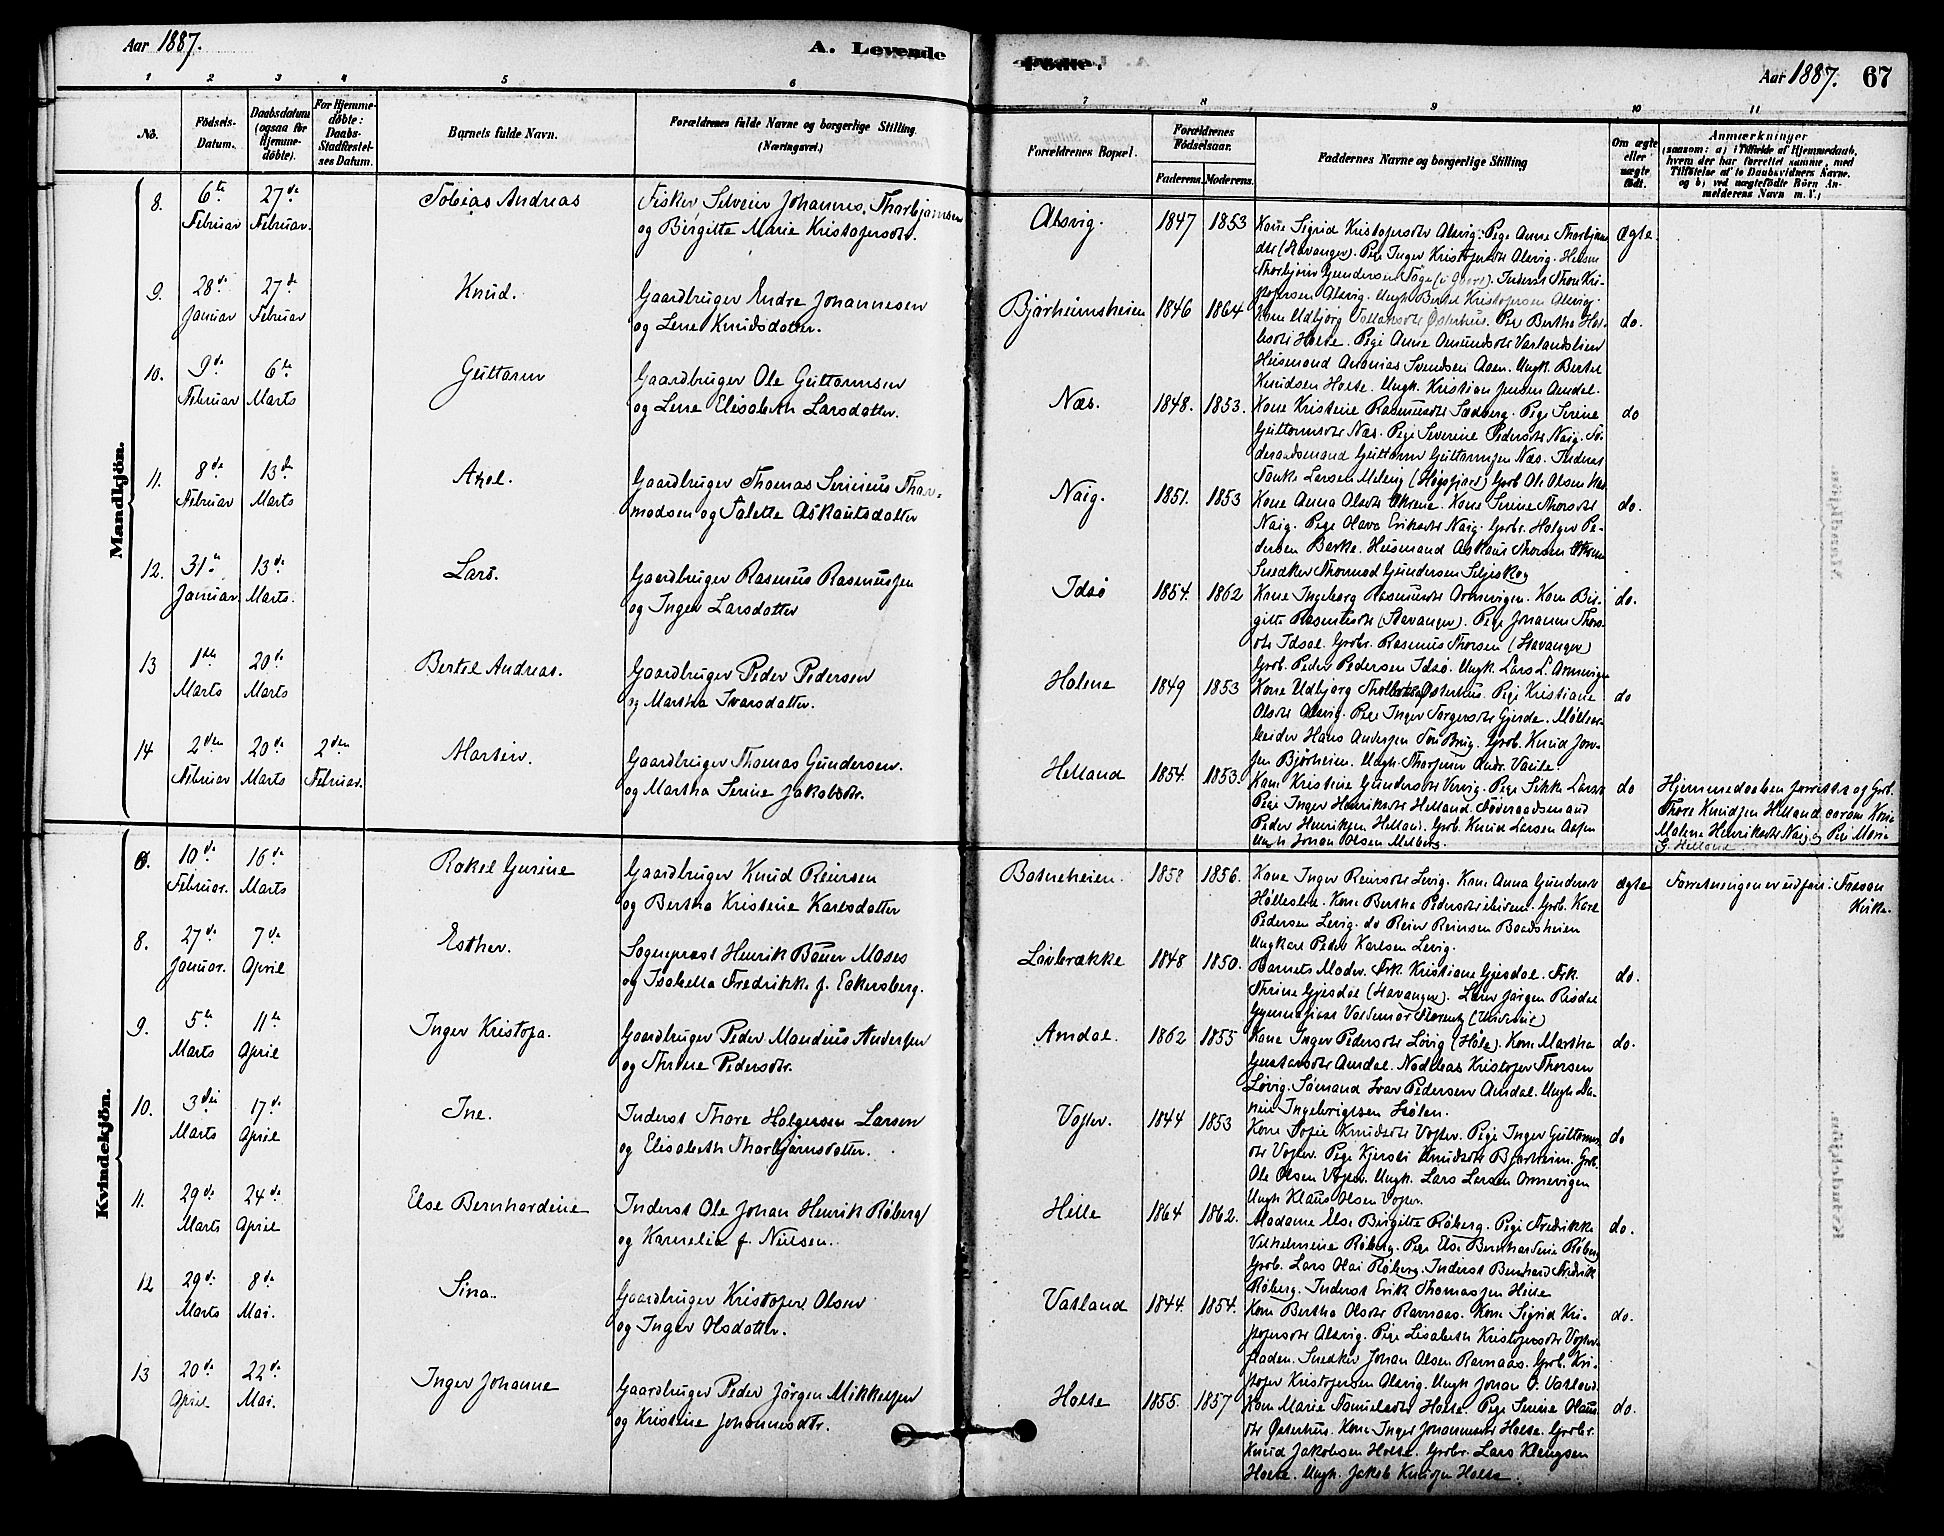 Aar 1887.
A. Levende
Fødte.
Aar 1887.
67
1 2 3 4 5 6
7 8 9 10 11
No.
Fødsels-
Datum.
Daabsdatum
(ogsaa for
Hjemme-
døbte).
For Hjemme-
døbte:
Daabs-
Stadfæstel-
ses Datum.
Barnets fulde Navn.
Forældrenes fulde Navne og borgerlige Stilling.
(Næringsvei.)
Forældrenes Bopæl.
Forældrenes
Fødselsaar.
Faderens. Moderens.
Faddernes Navne og borgerlige Stilling
Om ægte
eller
uægte
født.
Anmærkninger
(saasom: a) i Tilfælde af Hjemmedaab,
hvem der har forrettet samme, med
Tilføielse af to Daabsvidners Navne.
og b) ved uægtefødte Børn An-
melderens Navn m. V.)
Mandkjön.
8. 6te Februar 27de Februar. Tobias Andreas
Fisker Johannes Thorbjørnsen
og Birgitte Marie Kristofersdtr.
Alsvig. 1847 1853 ægte.
Kone Sigrid Kristofersdtr Alsvig. Pige Anne
(Stavanger). Pige Inger Kristofersdtr Alsvig.
Alsvig. Ungk Bertel Kristofersen Alsvig.
9. 28de Januar 27de Februar Knud.
Gaardbruger Endre Johannesen
og Lene Knudsdatter.
Bjørheimsheien 1846 1864 do.
Kone Udbjorg Østerhus. Pige Bertha
Holte. Pige Anne Amundsdtr Vatlandslien
Husmand Ananias Svendsen Aaen. Ungk. Bertel
Knudsen Holte. Ungk. Kristian Jensen Amdal.
10. 9de Februar 6te Marts Guttorm
Gaardbruger Ole Guttormsen
og Lene Elisabeth Larsdatter.
Næs. 1848. 1853. do
Kone Kristine Rasmusdtr Sedberg. Pige Serine
Guttormsdtr Næs. Pige Severine Pedersdtr Naig. Fø-
deraadsmand Guttorm Guttormsen Næs. Inderst
Larsen Meling (Høgsfjord) Grbr Ole Olsen Næs
11. 8de Februar 13de Marts Axel.
Gaardbruger Thomas Serinius Thor-
modsen og Talette Aslaksdatter
Naig. 1851. 1853 do.
Kone Anna Olsdtr Kone Serine Thorsdtr
Naig. Pige Olava Eriksdtr Naig. Grbr. Holger Pe-
dersen Barke. Husmand Thorsen
Snedker Thormod Gundersen Seljeskog
12. 31te Januar. 13de Marts. Lars.
Gaardbruger Rasmus Rasmussen
og Inger Larsdatter
Idsø 1854. 1862 do.
Kone Ingeborg Rasmusdtr Ormevigen. Kone Bir-
gitte Rasmusdtr (Stavanger). Pige Johanne Thors-
dtr Idsal. Grbr. Rasmus Thorsen (Stavanger)
Grb. Peder Pedersen Idsø. Ungk. Lars L. Ormevigen
13 1ste Marts 20de Marts Bertel Andreas.
Gaardbruger Peder Pedersen
og Martha Ivarsdatter.
Holene 1849 1853 do
Kone Udbjorg Østerhus. Pige Kristiane
Olsdtr Alsvig. Pige Inger Torgersdtr Gjerde.
Hans Andersen Grb. Knud
Bjørheim. Ungk.
14 2den Februar 20de Marts 2den Februar. Martin.
Gaardbruger Thomas Gundersen.
og Martha Serine Jakobsdtr.
Helland 1854. 1853. do
Kone Kristine Gundersdtr Pige Sikke Larsdtr
Pige Inger Henriksdtr Helland. Føderaadsmand
Peder Henriksen Helland. Grb. Knud Larsen
Ungk Johan Olsen Melberg.
Hjemmedaaben forrettet af Grb.
Thore Knudsen Helland coram Kone
Malene Henriksdtr Naig og Pige Maria
G. Helland
Kvindekjön.
10de Februar. 16de Marts Rakel Gurine
Gaardbruger Knud Reiersen
og Bertha Kristine Karlsdatter
Botneheien. 1856. ægte
Kone Inger Reiersdtr Levig. Kone Anna Gundersdtr
Kone Bertha Pedersdtr Grb. Karl
Pedersen Levig. do Reier Reiersen
Ungkarl Peder Karlsen Levig.
Forretningen er udført i Fossan
Kirke.
8. 27de Januar. 7de April Esther.
Sogneprest Henrik Bauer Moses
og Isabella Fredrikke f. Eckersberg.
Livbrække 1848 1850. do.
Barnets Moder. Frk. Kristiane Gjesdal. Frk.
Thrine Gjesdal (Stavanger). Jørgen Risdal
Valdemar
9. 5te Marts 11te April Inger Kristofa.
Gaardbruger Peder Mandius Andersen
og Thrine Pedersdtr.
Amdal. 1862 1855 do.
Kone Inger Pedersdtr Løvig (Høle). Kone Martha
Gustavsdtr Amdal. Kristofer Thorsen
Løvig. Sømand Ivar Pedersen Amdal. Ungk Da-
niel
10. 3die Marts 17de April Ine.
Inderst Thore Holgersen Larsen
og Elisabeth Thorbjørnsdatter.
1844 1853 do
Kone Sofie Knudsdtr Pige Inger Guttorms-
dtr Pige Kjersti Knudsdtr Bjørheim. Grb.
Ole Olsen Ungk. Lars Larsen Ormevigen
Ungk Klaus Olsen
11. 29de Marts 24de April Else Bernhardine
Inderst Ole Johan Henrik Røberg
og Karnelia f. Nielsen.
Helle 1864 1862. do.
Madame Else Birgitte Røberg. Pige Fredrikke
Vilhelmine Røberg. Pige Else Bernhardine Røberg
Grb. Lars Hai Røberg. Inderst Bernhard Fredrik
Røberg. Inderst Erik Thomassen Helle
12 29de Marts 8de Mai. Sina.
Gaardbruger Kristofer Olsen
og Inger Olsdatter.
Vatland 1844. 1854. do.
Kone Bertha Olsdtr Ravnaas. Kone Sigrid Kri-
stofersdtr Alsvig. Pige Lisabeth Kristofersdtr
Snedker Johan Olsen Ravnaas. Grb. Kri-
stofer Kristofersen Alsvig. Ungk Johan O. Vatland.
13 20de April 22de Mai. Inger Johanne
Gaardbruger Peder Jørgen Mikkelsen
og Kristine Johannesdtr.
Holte 1855. 1857 do.
Kone Marie Samuelsdtr Holte. Pige Serine
Østerhus. Kone Inger Johannesdtr Holte. Grbr.
Knud Jakobsen Holte. Grbr. Lars Klengsen
Holte. Ungk. Jakob Knudsen Holte.